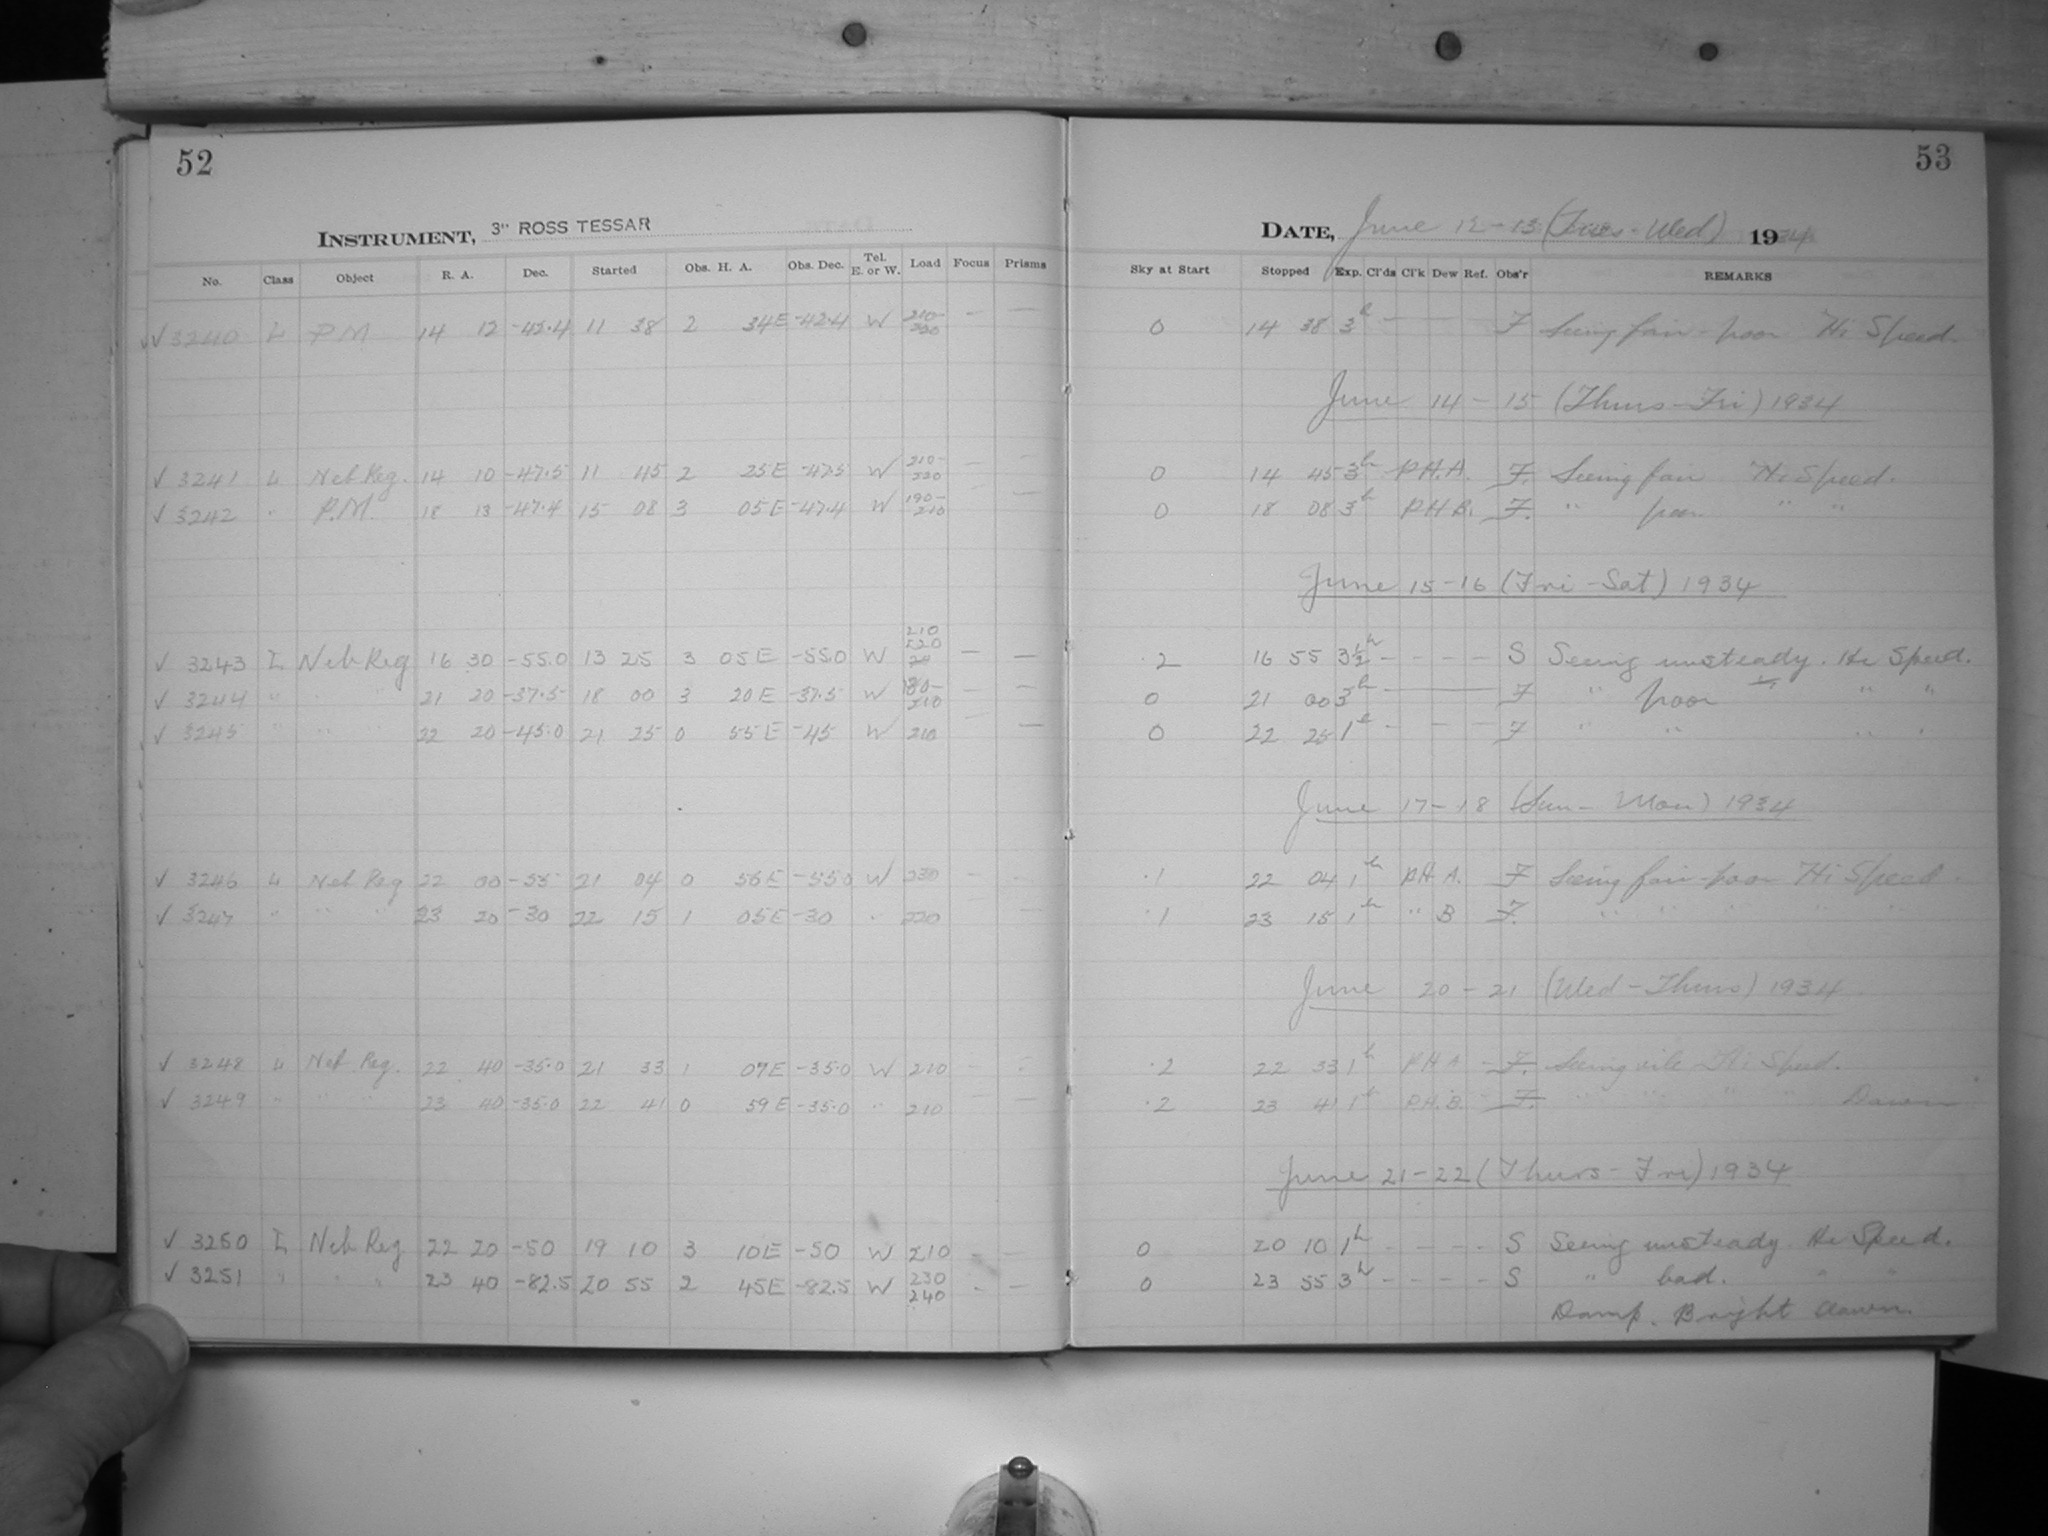 52
53
INSTRUMENT, 3" ROSS TESSAR
DATE, June 12-13 (Tues-Wed) 1934
No. Class Object R. A. Dec. Started Obs. H. A. Obs. Dec. Tel. E. or W. Load Focus Prisms Sky at Start Stopped Exp. Cl'ds Cl'k Dew Ref. Obs'r REMARKS
√√ 3240 L P.M. 14 12 -42.4 11 38 2 34E -42.4 W 210- 230 — — 0 14 38 3h — — F Seeing fair-poor Hi Speed.
June 14-15 (Thurs-Fri) 1934
√ 3241 L Neb Reg. 14 10 -47.5 11 45 2 25E -47.5 W 210- 230 — — 0 14 45 3h P.H.A. F. Seeing fair Hi Speed.
√ 3242 " P.M. 18 13 -47.4 15 08 3 05E -47.4 W 190- 210 — — 0 18 08 3h P.H.B. F. " poor " "
June 15-16 (Fri-Sat) 1934
√ 3243 L Neb Reg 16 30 -55.0 13 25 3 05E -55.0 W 210 — — .2 16 55 3½h - - - - S Seeing unsteady. Hi Speed.
√ 3244 " " " 21 20 -37.5 18 00 3 20E -37.5 W 180- 210 — — 0 21 00 3h — F " poor " "
√ 3245 " " " 22 20 -45.0 21 25 0 55E -45 W 210 — 0 22 25 1h - - - F " " " "
June 17-18 (Sun-Mon) 1934
√ 3246 L Neb Reg 22 00 -55 21 04 0 56E -55.0 W 230 - - .1 22 04 1h P.H.A. F Seeing fair-poor Hi Speed.
√ 3247 " " " 23 20 -30 22 15 1 05E -30 " 220 — .1 23 15 1h " B F. " " " " "
June 20-21 (Wed-Thurs) 1934
√ 3248 L Neb Reg. 22 40 -35.0 21 33 1 07E -35.0 W 210 - - .2 22 33 1h P.H.A. F. Seeing vile Hi Speed.
√ 3249 " " " 23 40 -35.0 22 41 0 59E -35.0 " 210 — — .2 23 41 1h P.H.B. F. " " " " Dawn
June 21-22 (Thurs-Fri) 1934
√ 3250 L Neb Reg 22 20 -50 19 10 3 10E -50 W 210 - - 0 20 10 1h - - - - S Seeing unsteady. Hi Speed.
√ 3251 " " " 23 40 -82.5 20 55 2 45E -82.5 W 230 240 - — 0 23 55 3h - - - - S " bad. " "
Damp. Bright dawn.